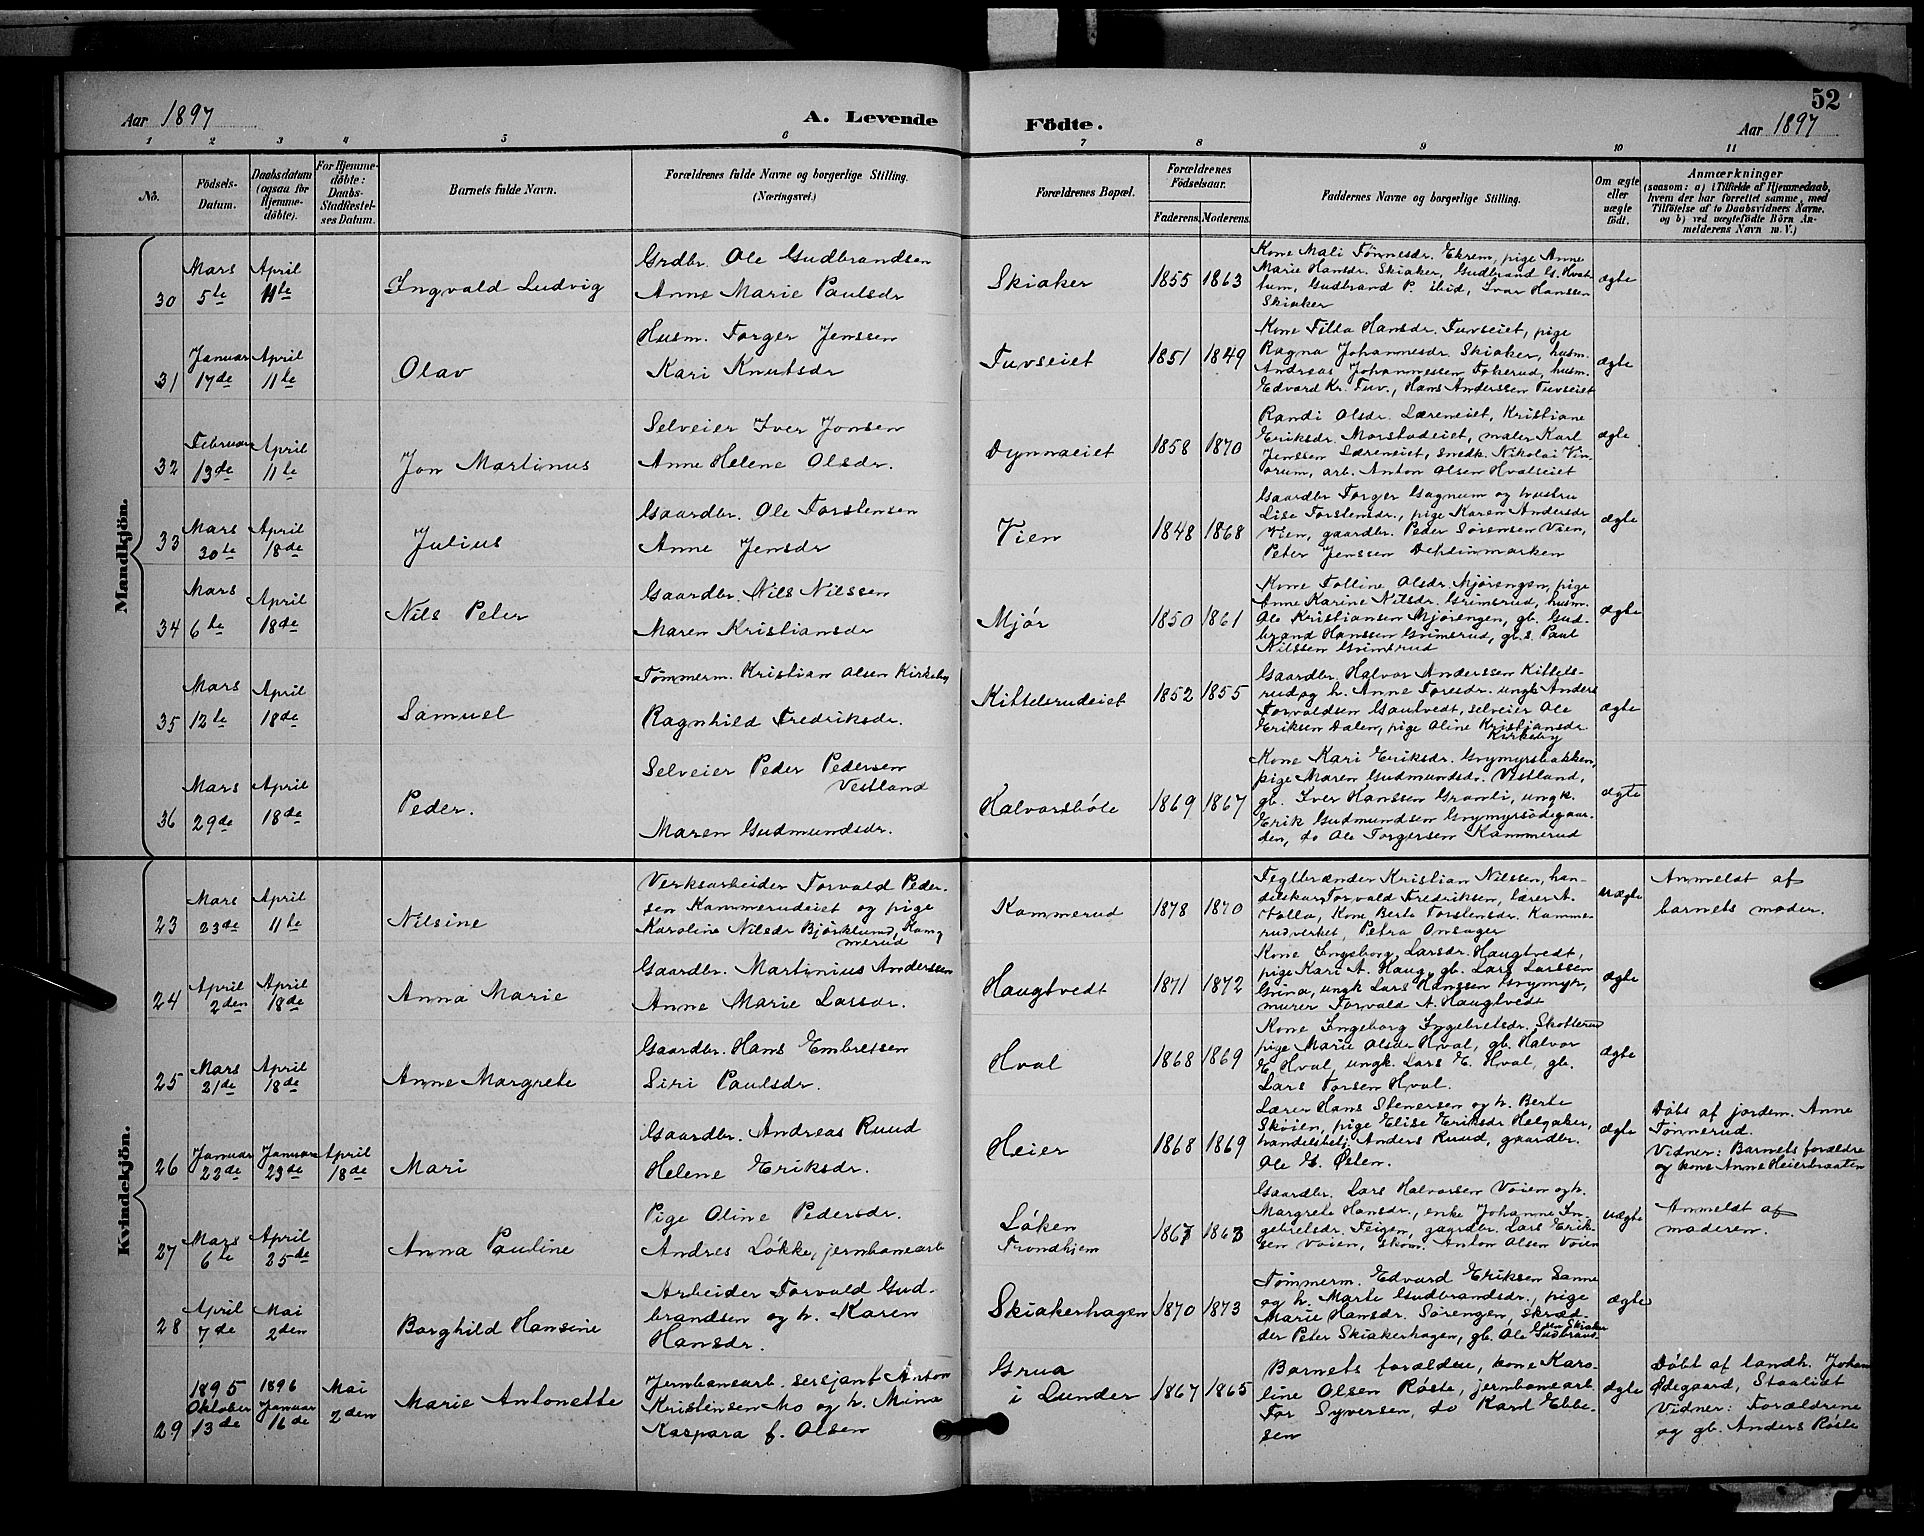 52
Aar 1897 A. Levende Fødte. Aar 1897
1 2 3 4 5 6 7 8 9 10 11
No.
Födsels-
Datum.
Daabsdatum
(ogsaa för
Hjemme-
döbte).
For Hjemme-
döbte:
Daabs-
Stadfæstel-
ses Datum.
Barnets fulde Navn.
Forældrenes fulde Navne og borgerlige Stilling.
(Næringsvei.)
Forældrenes Bopæl.
Forældrenes
Födselsaar.
Faderens. Moderens.
Faddernes Navne og borgerlige Stilling.
Om ægte
eller
uægte
födt.
Anmærkninger
(saasom: a) i Tilfælde af Hjemmedaab,
hvem der har forrettet samme, med
Tilföielse af to Daabsvidners Navne.
og b) ved uægtefödte Börn An-
melderens Navn m. V.)
Mandkjön.
30
Mars
5te
April
11te
Ingvald Ludvig
Grdbr. Ole Gudbrandsen
Anne Marie Paulsdr
Skiaker
1855 1863
Kone Mali Tønnesdr. Ekrem, pige Anne
Marie Hansdr. Skiaker, Gudbrand G. Hval-
tum, Gudbrand P. ibid, Ivar Hanssen
Skiaker
ægte
31
Januar
17de
April
11te
Olav
Husm. Torger Jenssen
Kari Knutsdr
Tuvseiet
1851 1849
Kone Tilla Hansdr. Tuvseiet, pige
Ragna Johannesdr. Skiaker, husm.
Andreas Johannessen Fokerud, husm.
Edvard Kr. Tuv., Hans Anderssen Tuvseiet
ægte
32
Februar
13de
April
11te
Jon Martinus
Selveier Iver Jonsen
Anne Helene Olsdr.
Dynnaeiet
1858 1870
Randi Olsdr. Læreneiet, Kristiane
Eriksdr. Morstadeiet, maler Karl
Jenssen Læreneiet, smedk. Nikolai Vin-
orum, arb. Anton Olsen Hvalseiet
ægte
33
Mars
30te
April
18de
Julius
Gaardbr. Ole Torstensen
Anne Jensdr
Vien
1848 1868
Gaardbr Torger Gagnum og hustru
Lise Torstensdr., pige Karen Andersdr
Vien, gaardbr. Peder Sørensen Vien,
Peter Jenssen Dehlinmarken
ægte
34
Mars
6te
April
18de
Nils Peter
Gaardbr. Nils Nilssen
Maren Kristiansdr
Mjør
1850 1861
Kone Tolline Olsdr Mjørengen, pige
Anne Karine Nilsdr. Grimsrud, husm.
Ole Kristiansen Mjørengen, gb. Gud-
brand Hanssen Grimsrud, gb.s. Paul
Nilssen Grimsrud
ægte
35
Mars
12te
April
18de
Samuel
Tømmerm. Kristian Olsen Kirkeby
Ragnhild Fredriksdr.
Kittelsrudeiet
1852 1855
Gaardbr. Halvor Anderssen Kittels-
rud og h. Anne Toresdr. ungk Anders
Torvaldsen Gautvedt, selveier Ole
Eriksen Dalen, pige Oline Kristiansdr
Kirkeby
ægte
36
Mars
29de
April
18de
Peder.
Selveier Peder Pedersen
Vestland
Maren Gudmundsdr.
Halvorsbøle
1869 1867
Kone Kari Eriksdr. Grymyrbakken,
pige Maren Gudmundsdr. Vestland,
gb. Iver Hanssen Granli, ungk.
Erik Gudmundsen Grymyrsødegaar-
den, do Ole Torgersen Kammerud
ægte
Kvindekjön.
23
Mars
23de
April
11te
Nilsine
Verksarbeider Torvald Peder-
sen Kammerudeiet og pige
Karoline Nilsdr Bjørklund, Kam-
merud
Kammerud
1878 1870
Teglbrænder Kristian Nilssen, han-
delskar Torvald Fredriksen, lærer A.
Holla, Kone Berte Torstensdr. Kamme-
rudverket, Petra Onsager
uægte
Anmeldt af
barnets moder.
24
April
2den
April
18de
Anna Marie
Gaardbr. Martinius Anderssen
Anne Marie Larsdr.
Haugtvedt
1871 1872
Kone Ingeborg Larsdr. Haugtvedt,
pige Kari A. Haug, gb. Lars Larssen
Grina, ungk Lars Hanssen Grymyr,
murer Torvald A. Haugtvedt
ægte
25
Mars
21de
April
18de
Anne Margrete
Gaardbr. Hans Embretsen
Siri Paulsdr.
Hval
1868 1869
Kone Ingeborg Ingebretsdr. Skotterud
pige Marie Olsdr Hval, gb. Halvor
E. Hval, ungk. Lars E. Hval, gb.
Lars Torsen Hval.
ægte
26
Januar
22de
Januar
23de
April
18de
Mari
Gaardbr. Andreas Ruud
Helene Eriksdr.
Heier
1868 1869
Lærer Hans Stenersen og h. Berte
Skøien, pige Elise Eriksdr Helgaker,
handelsbetj. Anders Ruud, gaardbr.
Ole E. Østen.
ægte
Døbt af jordem. Anne
Tønnerud.
Vidner: Barnets forældre
og kone Anne Heierbraaten
27
Mars
6te
April
25de
Anna Pauline
Pige Oline Pedersdr.
Andres Løkke, jernbanearb
Løken
Trondhjem
1867 1863
Gaardbr. Lars Halvorsen Vøien og h.
Margrete Hansdr., enke Johanne In-
gebretsdr. Teigen, gaardbr. Lars Erik-
sen Vøien, skom. Anton Olsen Vøien
uægte
Anmeldt af
moderen.
28
April
7de
Mai
2den
Borghild Hansine
Arbeider Torvald Gud-
brandsen og h. Karen
Hansdr.
Skiakerhagen
1870 1873
Tømmerm. Edvard Eriksen Sanne
og h. Marte Gudbrandsdr., pige
Marie Hansdr. Sørengen, skræd-
der Peter Skiakerhagen, gb. Ole Gudbrand-
sen Skiaker
ægte
29
1895
Oktober
13de
1896
Januar
16de
Mai
2den
Marie Antonette
Jernbanearb. sersjant Anton
Kristensen Mo og h. Mina
Kaspara f. Olsen
Grua
i Lunder
1867 1865
Barnets forældre, kone Karo-
line Olsen Røste, jernbanearb.
Tor Syversen, do Karl Ebbe-
sen
ægte
Døbt af landh. Johan
Ødegaard,
Vidner: Forældrene
og gb. Anders Røste